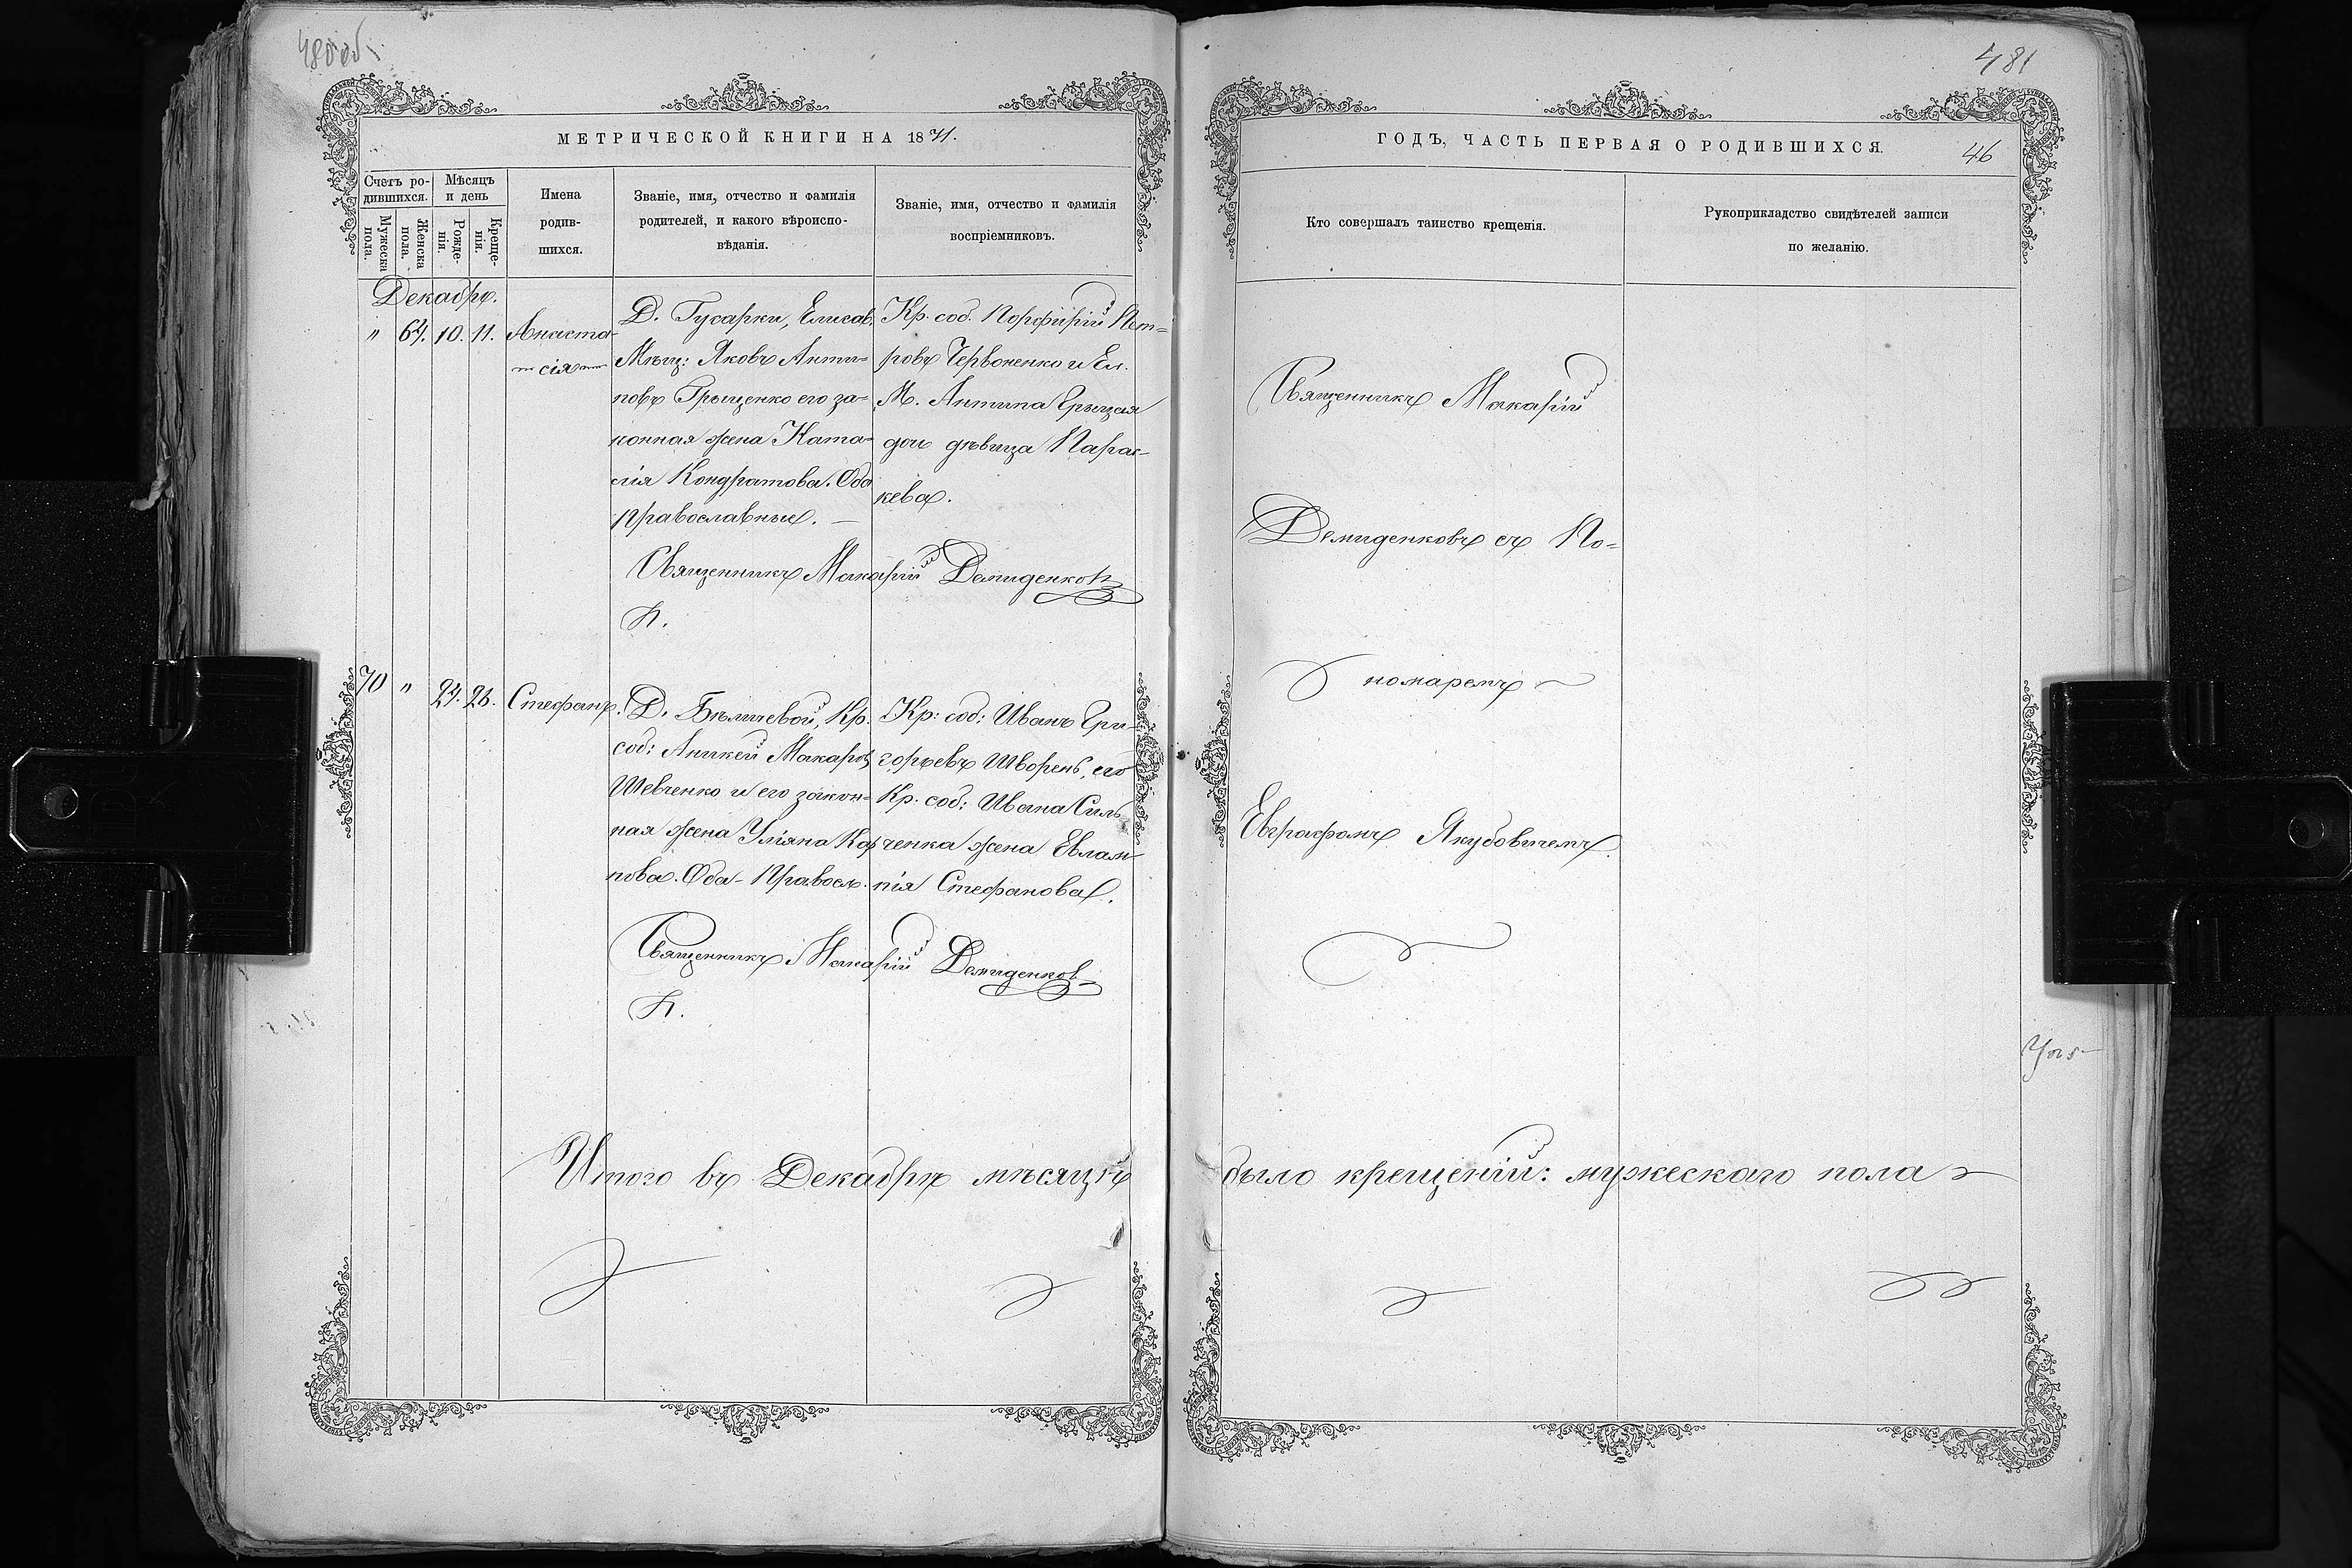 480 об
МЕТРИЧЕСКОЙ КНИГИ НА 1871.
Счетъ ро-
дившихся.
Мужеска пола.
Женска пола.
Мѣсяцъ
и день
Рожде-
нія.
Креще-
нія.
Имена
родив-
шихся.
Званіе, имя, отчество и фамилія
родителей, и какого вѣроиспо-
вѣданія.
Званіе, имя, отчество и фамилія
воспріемниковъ.
Декабрь.
" 67. 10. 11. Анаста-
сія
Д. Гусарки, Елисав.
Мѣщ: Яковъ Анти-
повъ Грыценко его за-
конная жена Ната-
лія Кондратова. Оба
православные. —
Кр. соб. Порфирій Пет-
ровъ Червоненко и Ел.
М. Антипа Грыцая
дочь дѣвица Парас-
кева.
Священникъ Макарій Демиденковъ
70 " 24. 26. Стефанъ.
Д. Бѣличевой, Кр.
соб: Аникей Макаровъ
Шевченко и его закон-
ная жена Уліяна Кар-
пова. Оба - Правосл.
Кр: соб: Иванъ Гри-
горьевъ Шворень, его
Кр. соб: Ивана Силь
ченка жена Евлам-
пія Стефанова.
Священникъ Макарій Демиденков
Итого въ Декабрѣ мѣсяцѣ
481
ГОДЪ, ЧАСТЬ ПЕРВАЯ О РОДИВШИХСЯ.
46
Кто совершалъ таинство крещенія.
Рукоприкладство свидѣтелей записи
по желанію.
Священникъ Макарій
Демиденковъ съ По-
номаремъ
Евграфомъ Якубовичемъ.
было крещеній: мужескаго пола